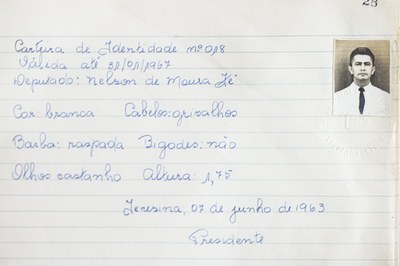 23
Carteira de Identidade nº 018
Válida até 31/01/1967
Deputado: Nelson de Moura Fé
Cor: branca Cabelos: grisalhos
Barba: raspada Bigodes: não
Olhos castanho Altura: 1,75
Teresina, 07 de junho de 1963
Presidente